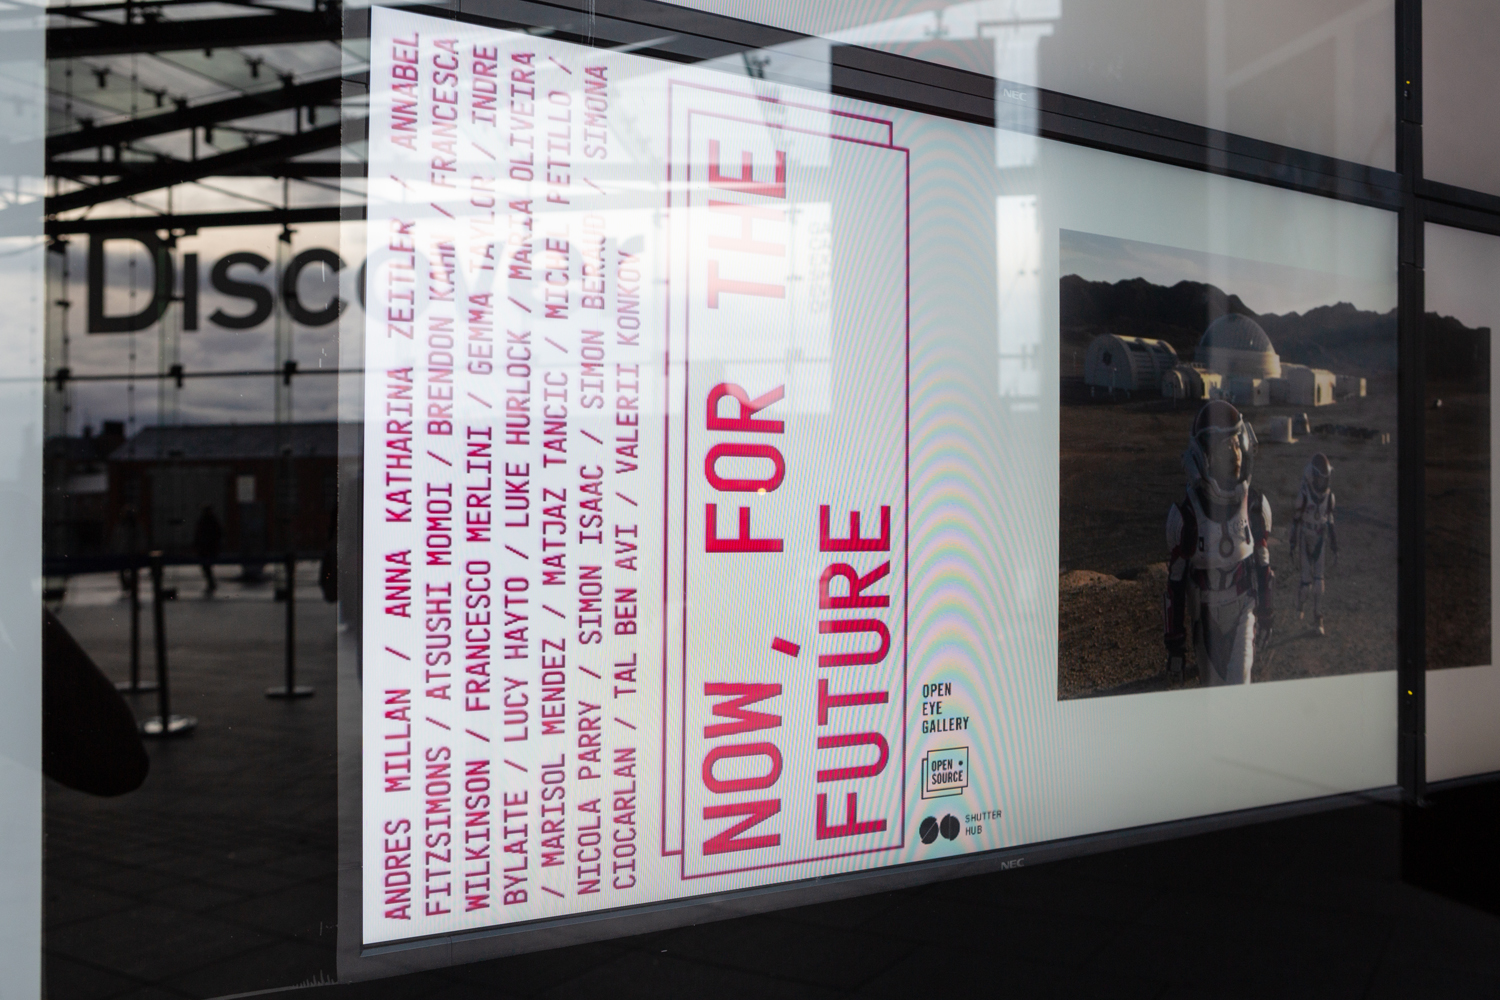 Discover
ANDRES MILLAN / ANNA KATHARINA ZEITLER / ANNABEL
FITZSIMONS / ATSUSHI MOMOI / BRENDON KAHN / FRANCESCA
WILKINSON / FRANCESCO MERLINI / GEMMA TAYLOR / INDRE
BYLAITE / LUCY HAYTO / LUKE HURLOCK / MARIA OLIVEIRA
/ MARISOL MENDEZ / MATJAZ TANCIC / MICHEL PETILLO /
NICOLA PARRY / SIMON ISAAC / SIMON BERAUD / SIMONA
CIOCARLAN / TAL BEN AVI / VALERII KONKOV
NOW, FOR THE
FUTURE
OPEN
EYE
GALLERY
OPEN
SOURCE
SHUTTER
HUB
NEC
NEC